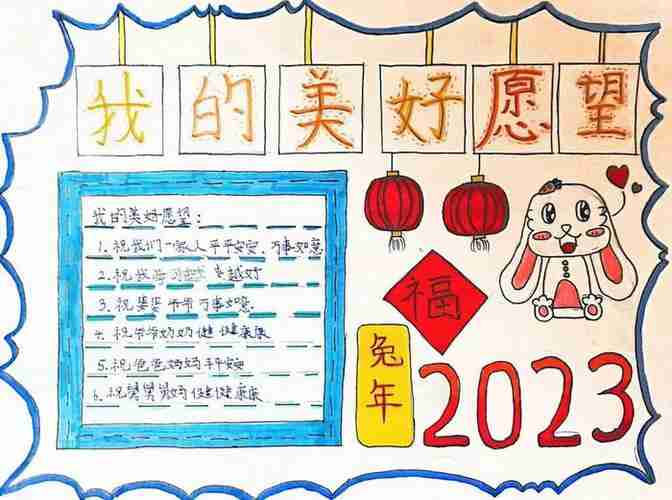 我的美好愿望
我的美好愿望：
1. 祝我们一家人平平安安，万事如意
2. 祝我学习越来越好
3. 祝婆婆爷爷万事如意.
4. 祝爷爷奶奶健健康康
5. 祝爸爸妈妈平安
6. 祝舅舅舅妈健健康康
福
兔年
2023